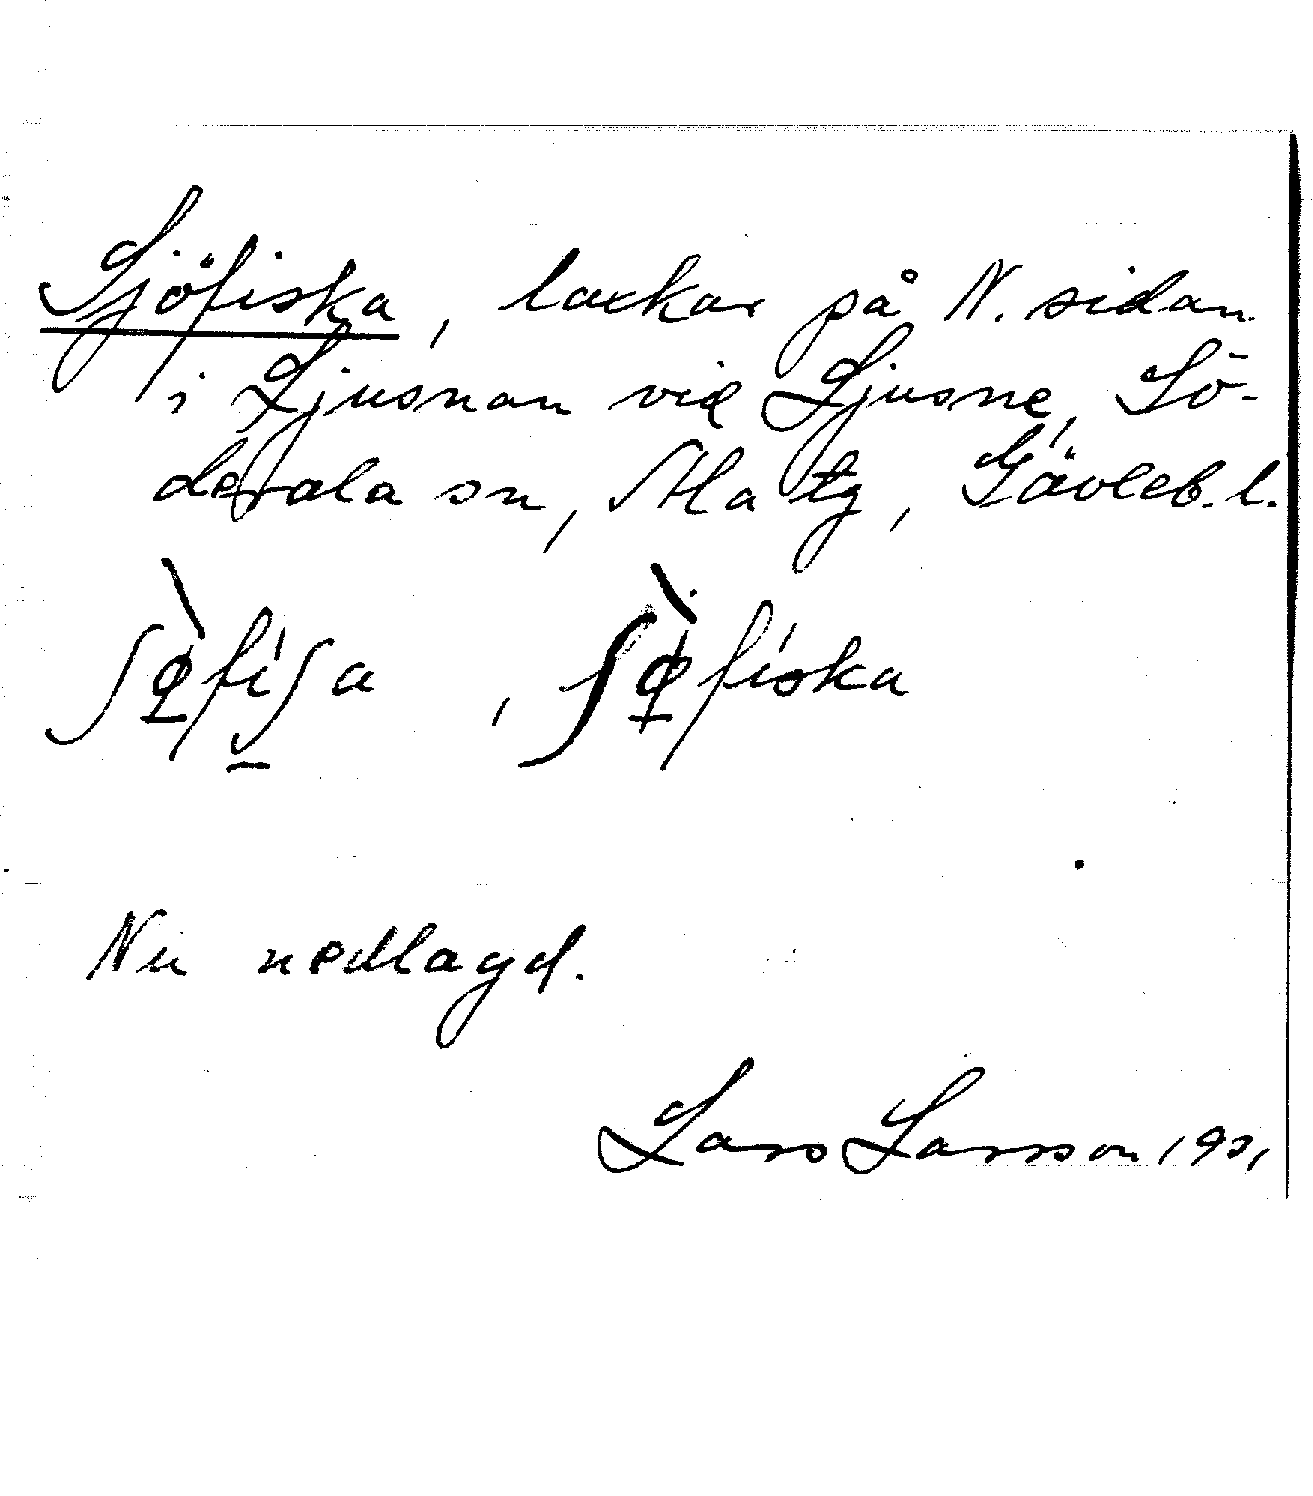 Sjöfiska, laxkar på N. sidan
i Ljusnan vid Ljusne, Sö-
derala sn, Ala tg, Gävleb. l.
fiska
Nu nedlagd.
Lars Larsson